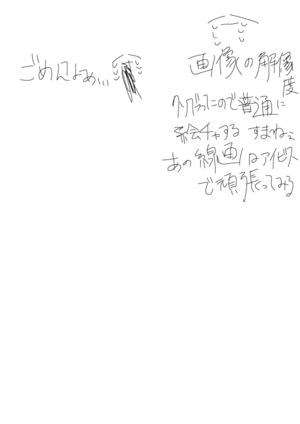 ごめんよぉぉ…
画像の解像度
クソだったので普通に
絵チャする すまねぇ
あの線画はアイビスで頑張ってみる